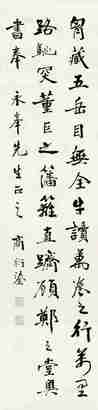 胸藏五岳目無全牛讀萬卷之行萬里
路馳突董巨之藩籬直躋顧鄭之堂奧
書奉 永年先生正之 商衍鎏